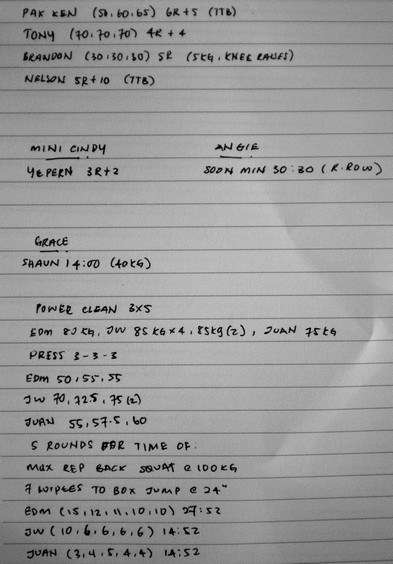 PAK KEN (50,60,65) 6R+5 (TTB)
TONY (70,70,70) 4R + 4
BRANDON (30,30,30) 5R (5KG, KNEE RAISES)
NELSON 5R+10 (TTB)
MINI CINDY ANGIE
YEPERN 3R+2 SOON MIN 30:30 (R.ROW)
GRACE
SHAUN 14:00 (40KG)
POWER CLEAN 3X5
EDM 80KG, JW 85KG×4, 85kg(2), JUAN 75KG
PRESS 3-3-3
EDM 50,55,55
JW 70,72.5,75(2)
JUAN 55,57.5,60
5 ROUNDS FOR TIME OF:
MAX REP BACK SQUAT @ 100KG
7 TO BOX JUMP @ 24"
EDM (15,12,11,10,10) 27:52
JW (10,6,6,6,6) 14:52
JUAN (3,4,5,4,4) 14:52